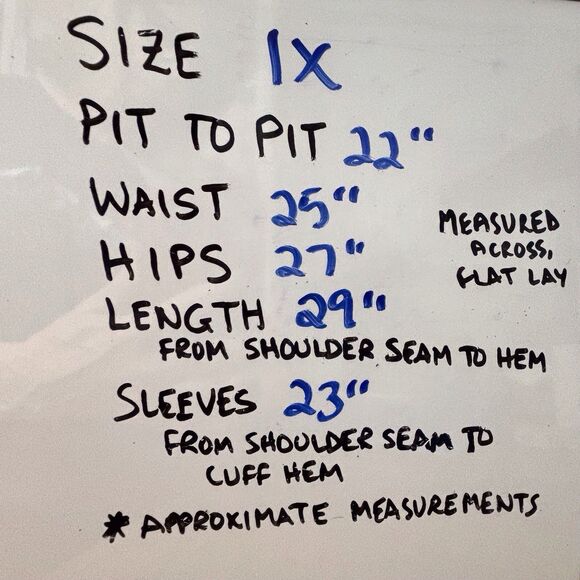 SIZE 1X
PIT TO PIT 22"
WAIST 25"
HIPS 27"
MEASURED
ACROSS,
FLAT LAY
LENGTH 29"
FROM SHOULDER SEAM TO HEM
SLEEVES 23"
FROM SHOULDER SEAM TO
CUFF HEM
* APPROXIMATE MEASUREMENTS